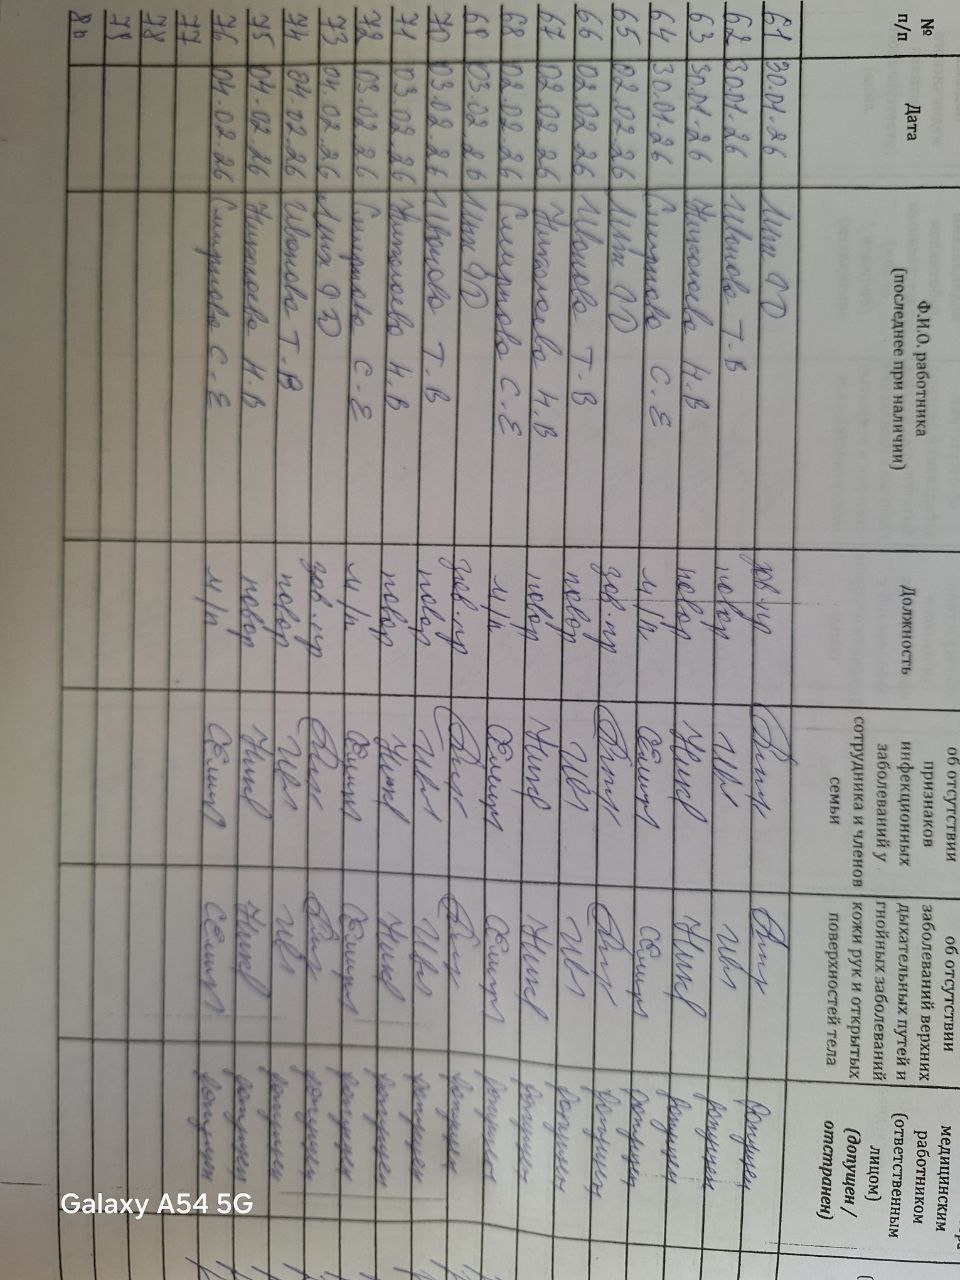 № п/п
Дата
Ф.И.О. работника
(последнее при наличии)
Должность
об отсутствии
признаков
инфекционных
заболеваний у
сотрудника и членов
семьи
об отсутствии
заболеваний верхних
дыхательных путей и
гнойных заболеваний
кожи рук и открытых
поверхностей тела
медицинским
работником
(ответственным
лицом)
(допущен /
отстранен)
61 30.01.26 допущен
62 30.01.26 Иванова Т.В повар Ив допущен
63 30.01.26 Николаева Н.В повар Ник Ник допущен
64 30.01.26 Смирнова С.Е м/п Смир Смир допущен
65 02.02.26 зав.пр допущен
66 02.02.26 Иванова Т.В повар Ив допущен
67 02.02.26 Николаева Н.В повар Ник Ник допущен
68 02.02.26 Смирнова С.Е м/п Смир Смир допущен
69 03.02.26 зав.пр допущен
70 03.02.26 Иванова Т.В повар Ив допущен
71 03.02.26 Николаева Н.В повар Ник Ник допущен
72 03.02.26 Смирнова С.Е м/п Смир Смир допущен
73 04.02.26 зав.пр допущен
74 04.02.26 Иванова Т.В повар Ив допущен
75 04.02.26 Николаева Н.В повар Ник Ник допущен
76 04.02.26 Смирнова С.Е м/п Смир Смир допущен
77
78
79
80
Galaxy A54 5G